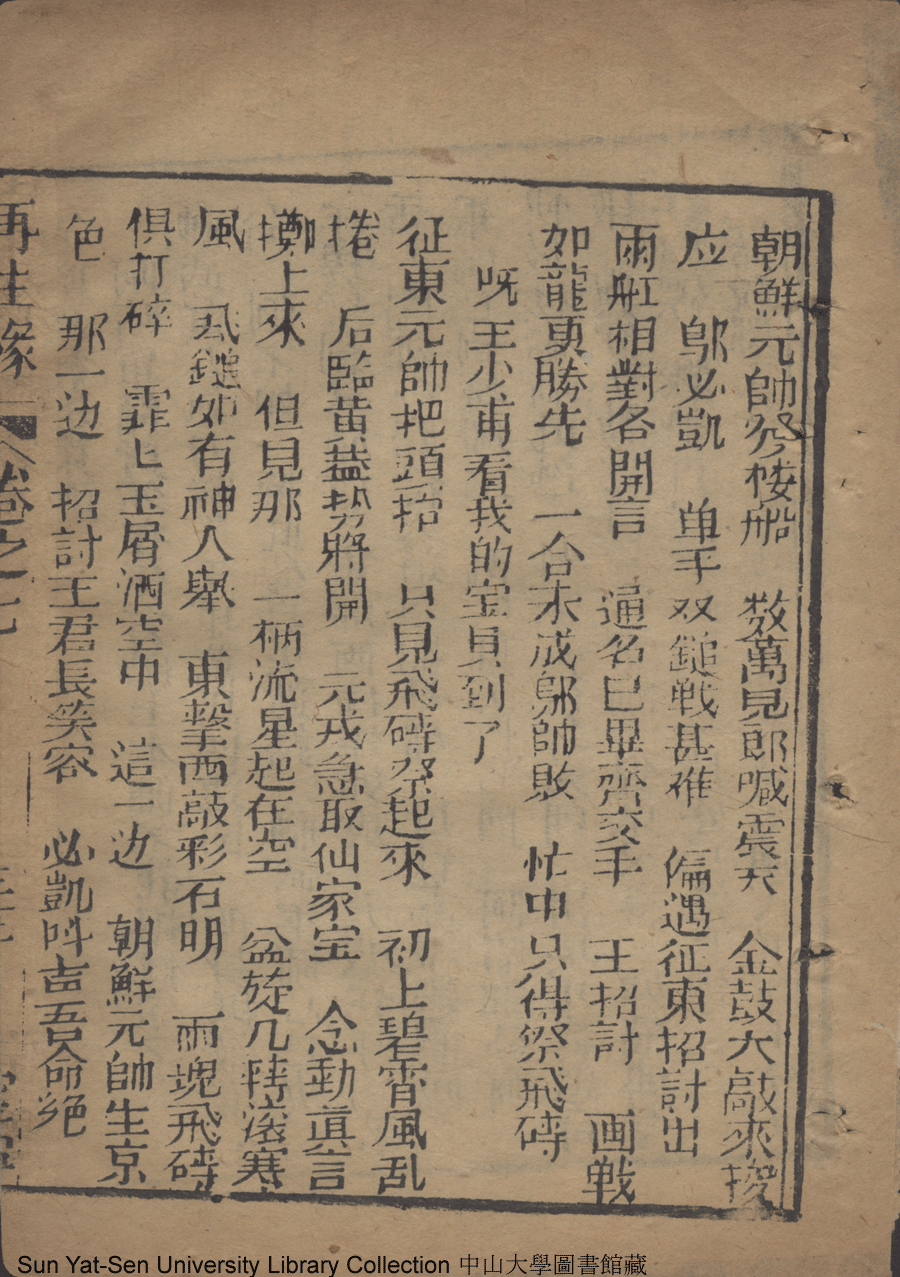 朝鮮元帥祭楼船　数萬見郎喊震天　金鼓大敲來接
应　邬必凱　单手双鎚戦甚难　偏遇征東招討出
兩舡相對各開言　通名已畢齊交手　王招討　画戰
如龍更勝先　一合未成邬帥敗　忙中只得祭飛磚
呀王少甫看我的宝貝到了
征東元帥把頭抬　只見飛磚祭起來　初上碧霄風乱
捲　后臨黄盖勢將開　元戎急取仙家宝　念動真言
擲上來　但見那　一柄流星起在空　盆旋几轉滾寒
風　鎚如有神人舉　東擊西敲彩石明　兩塊飛磚
俱打碎　霏匕玉屑洒空中　這一边　朝鮮元帥生京
色　那一边　招討王君長笑容　必凱呌吉吾命绝
再生縁　卷之十七
Sun Yat-Sen University Library Collection 中山大學圖書館藏